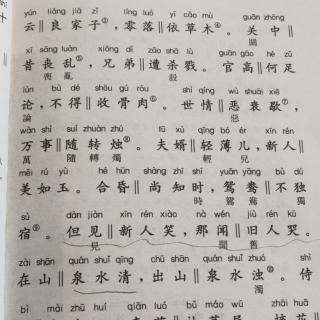 shí
yún liáng jiā zǐ líng luò yī cǎo mù guān zhōng
十
云‖良家子③，零落‖依草木④。关中‖
關
xī sāng luàn xiōng dì zāo shā lù guān gāo hé zú
昔丧乱，兄弟‖遭杀戮。官高‖何足
喪亂 殺
lùn bù dé shōu gǔ ròu shì qíng wù shuāi xiē
论，不得‖收骨肉⑥。世情‖恶衰歇⑦，
論 惡
wàn shì suí zhuǎn zhú fū xù qīng bó ér xīn rén
万事‖随转烛⑧。夫婿‖轻薄儿，新人‖
萬 隨轉燭 輕 兒
měi rú yù hé hūn shàng zhī shí yuān yāng bù dú
美如玉。合昏‖尚知时，鸳鸯‖不独
時 鴛鴦 獨
sù dàn jiàn xīn rén xiào nà wén jiù rén kū
宿⑨。但见‖新人笑，那闻‖旧人哭。
見 聞 舊
zài shān quán shuǐ qīng chū shān quán shuǐ zhuó shì
在山‖泉水清，出山‖泉水浊⑩。侍
濁
bì mài zhū huí qiān luó bǔ máo